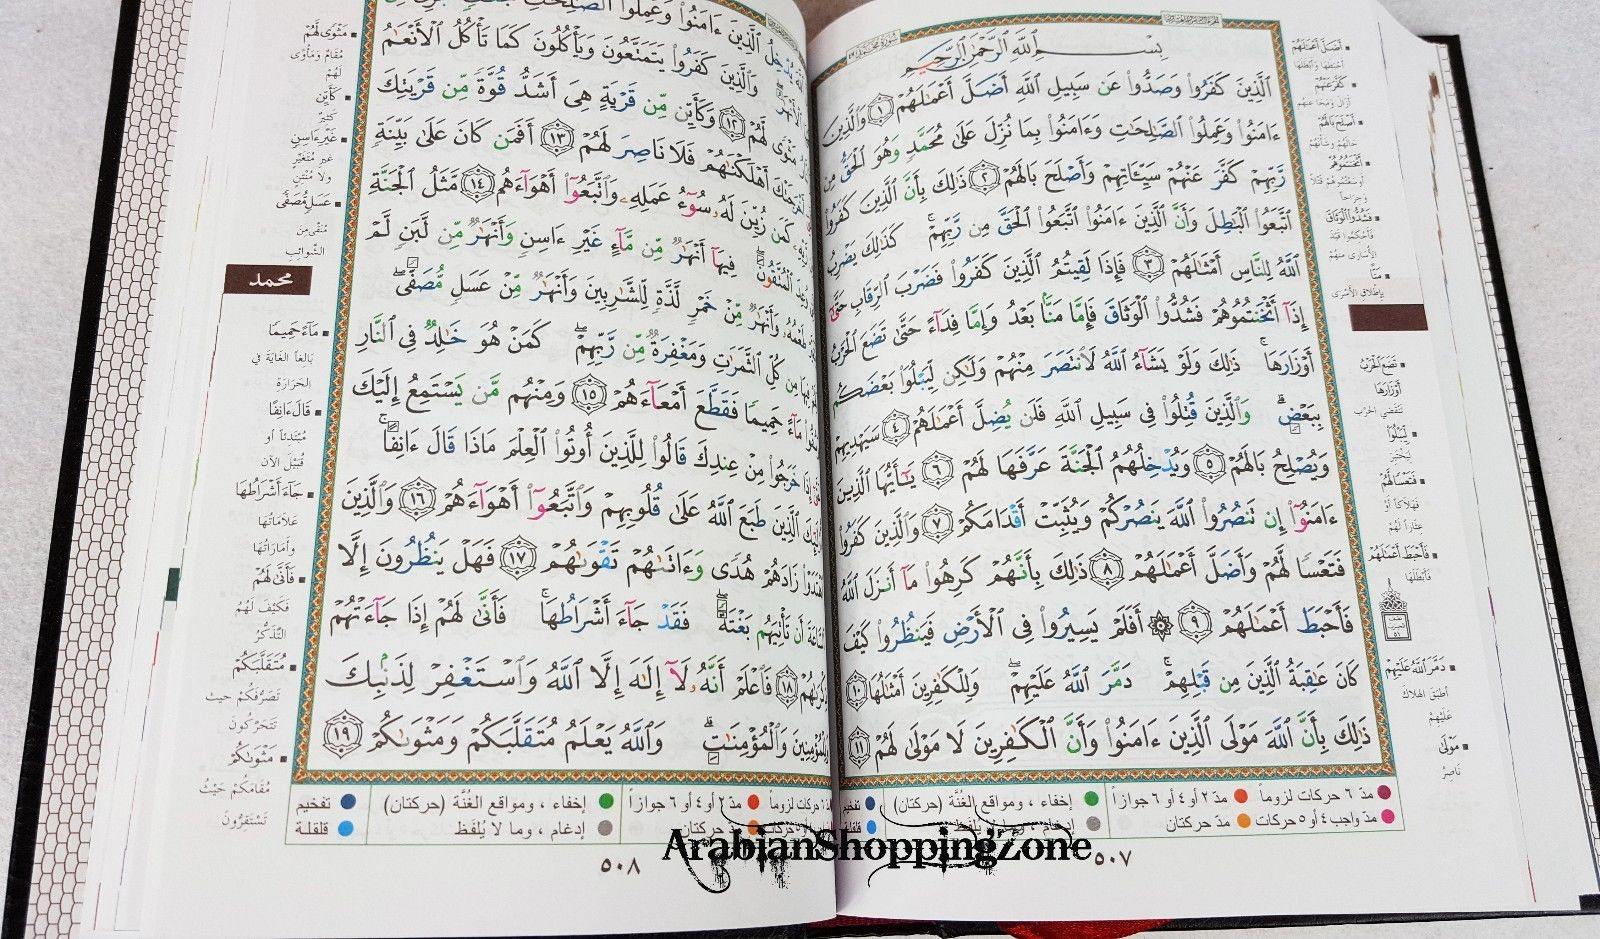 بِسْمِ اللَّهِ الرَّحْمَٰنِ الرَّحِيمِ
الَّذِينَ كَفَرُوا وَصَدُّوا عَن سَبِيلِ اللَّهِ أَضَلَّ أَعْمَالَهُمْ ١ وَالَّذِينَ
آمَنُوا وَعَمِلُوا الصَّالِحَاتِ وَآمَنُوا بِمَا نُزِّلَ عَلَىٰ مُحَمَّدٍ وَهُوَ الْحَقُّ مِن
رَّبِّهِمْ كَفَّرَ عَنْهُمْ سَيِّئَاتِهِمْ وَأَصْلَحَ بَالَهُمْ ٢ ذَٰلِكَ بِأَنَّ الَّذِينَ كَفَرُوا
اتَّبَعُوا الْبَاطِلَ وَأَنَّ الَّذِينَ آمَنُوا اتَّبَعُوا الْحَقَّ مِن رَّبِّهِمْ ۚ كَذَٰلِكَ يَضْرِبُ
اللَّهُ لِلنَّاسِ أَمْثَالَهُمْ ٣ فَإِذَا لَقِيتُمُ الَّذِينَ كَفَرُوا فَضَرْبَ الرِّقَابِ حَتَّىٰ
إِذَا أَثْخَنتُمُوهُمْ فَشُدُّوا الْوَثَاقَ فَإِمَّا مَنًّا بَعْدُ وَإِمَّا فِدَاءً حَتَّىٰ تَضَعَ الْحَرْبُ
أَوْزَارَهَا ۚ ذَٰلِكَ وَلَوْ يَشَاءُ اللَّهُ لَانتَصَرَ مِنْهُمْ وَلَٰكِن لِّيَبْلُوَا بَعْضَكُم
بِبَعْضٍ ۗ وَالَّذِينَ قُتِلُوا فِي سَبِيلِ اللَّهِ فَلَن يُضِلَّ أَعْمَالَهُمْ ٤ سَيَهْدِيهِمْ
وَيُصْلِحُ بَالَهُمْ ٥ وَيُدْخِلُهُمُ الْجَنَّةَ عَرَّفَهَا لَهُمْ ٦ يَا أَيُّهَا الَّذِينَ
آمَنُوا إِن تَنصُرُوا اللَّهَ يَنصُرْكُمْ وَيُثَبِّتْ أَقْدَامَكُمْ ٧ وَالَّذِينَ كَفَرُوا
فَتَعْسًا لَّهُمْ وَأَضَلَّ أَعْمَالَهُمْ ٨ ذَٰلِكَ بِأَنَّهُمْ كَرِهُوا مَا أَنزَلَ اللَّهُ
فَأَحْبَطَ أَعْمَالَهُمْ ٩ ۞ أَفَلَمْ يَسِيرُوا فِي الْأَرْضِ فَيَنظُرُوا كَيْفَ
كَانَ عَاقِبَةُ الَّذِينَ مِن قَبْلِهِمْ ۚ دَمَّرَ اللَّهُ عَلَيْهِمْ ۖ وَلِلْكَافِرِينَ أَمْثَالُهَا ١٠
ذَٰلِكَ بِأَنَّ اللَّهَ مَوْلَى الَّذِينَ آمَنُوا وَأَنَّ الْكَافِرِينَ لَا مَوْلَىٰ لَهُمْ ١١
أَضَلَّ أَعْمَالَهُمْ
أحبطها وأبطلها
كَفَّرَ عَنْهُمْ
أزال ومحا عنهم
أَصْلَحَ بَالَهُمْ
حالهم وشأنهم
أَثْخَنتُمُوهُمْ
أوسعتموهم قتلاً
وجراحاً
فَشُدُّوا الْوَثَاقَ
فأحكموا قيد
الأسارى منهم
مَنًّا
بإطلاق الأسرى
تَضَعَ الْحَرْبُ
أَوْزَارَهَا
تنقضي الحرب
لِّيَبْلُوَا
ليختبر
فَتَعْسًا لَّهُمْ
فهلاكاً أو
عثاراً لهم
فَأَحْبَطَ أَعْمَالَهُمْ
فأبطلها
دَمَّرَ اللَّهُ عَلَيْهِمْ
أطبق الهلاك
عليهم
مَوْلَى
ناصر
مدّ ٦ حركات لزوماً مدّ ٢ أو ٤ أو ٦ جوازاً إخفاء ، ومواقع الغُنَّة (حركتان) تفخيم
مدّ واجب ٤ أو ٥ حركات مدّ حركتان
٥٠٧
الَّذِينَ آمَنُوا وَعَمِلُوا الصَّالِحَاتِ
وَالَّذِينَ كَفَرُوا يَتَمَتَّعُونَ وَيَأْكُلُونَ كَمَا تَأْكُلُ الْأَنْعَامُ
مَثْوًى لَّهُمْ ١٢ وَكَأَيِّن مِّن قَرْيَةٍ هِيَ أَشَدُّ قُوَّةً مِّن قَرْيَتِكَ
أَهْلَكْنَاهُمْ فَلَا نَاصِرَ لَهُمْ ١٣ أَفَمَن كَانَ عَلَىٰ بَيِّنَةٍ
كَمَن زُيِّنَ لَهُ سُوءُ عَمَلِهِ وَاتَّبَعُوا أَهْوَاءَهُم ١٤ مَّثَلُ الْجَنَّةِ
الْمُتَّقُونَ ۖ فِيهَا أَنْهَارٌ مِّن مَّاءٍ غَيْرِ آسِنٍ وَأَنْهَارٌ مِّن لَّبَنٍ لَّمْ
وَأَنْهَارٌ مِّنْ خَمْرٍ لَّذَّةٍ لِّلشَّارِبِينَ وَأَنْهَارٌ مِّنْ عَسَلٍ مُّصَفًّى ۖ
مِن كُلِّ الثَّمَرَاتِ وَمَغْفِرَةٌ مِّن رَّبِّهِمْ ۖ كَمَنْ هُوَ خَالِدٌ فِي النَّارِ
مَاءً حَمِيمًا فَقَطَّعَ أَمْعَاءَهُمْ ١٥ وَمِنْهُم مَّن يَسْتَمِعُ إِلَيْكَ
خَرَجُوا مِنْ عِندِكَ قَالُوا لِلَّذِينَ أُوتُوا الْعِلْمَ مَاذَا قَالَ آنِفًا ۚ
الَّذِينَ طَبَعَ اللَّهُ عَلَىٰ قُلُوبِهِمْ وَاتَّبَعُوا أَهْوَاءَهُمْ ١٦ وَالَّذِينَ
زَادَهُمْ هُدًى وَآتَاهُمْ تَقْوَاهُمْ ١٧ فَهَلْ يَنظُرُونَ إِلَّا
أَن تَأْتِيَهُم بَغْتَةً ۖ فَقَدْ جَاءَ أَشْرَاطُهَا ۚ فَأَنَّىٰ لَهُمْ إِذَا جَاءَتْهُمْ
ذِكْرَاهُمْ ١٨ فَاعْلَمْ أَنَّهُ لَا إِلَٰهَ إِلَّا اللَّهُ وَاسْتَغْفِرْ لِذَنبِكَ
وَلِلْمُؤْمِنِينَ وَالْمُؤْمِنَاتِ ۗ وَاللَّهُ يَعْلَمُ مُتَقَلَّبَكُمْ وَمَثْوَاكُمْ ١٩
مَثْوًى لَّهُمْ
مقام ومأوى
لهم
كَأَيِّن
كثير
غَيْرِ آسِنٍ
غير متغير
ولا منتن
عَسَلٍ مُّصَفًّى
منقى من
الشوائب
محمد
مَاءً حَمِيمًا
بالغاً الغاية في
الحرارة
قَالَ آنِفًا
مبتدئاً أو
قبيل الآن
جَاءَ أَشْرَاطُهَا
علاماتها
وأماراتها
فَأَنَّىٰ لَهُمْ
فكيف لهم
التذكر
مُتَقَلَّبَكُمْ
تصرفكم حيث
تتحركون
مَثْوَاكُمْ
مقامكم حيث
تستقرون
مدّ ٢ أو ٤ أو ٦ جوازاً إخفاء ، ومواقع الغُنَّة (حركتان) تفخيم
مدّ حركتان إدغام ، وما لا يُلفَظ قلقلة
٥٠٨
ArabianShoppingZone